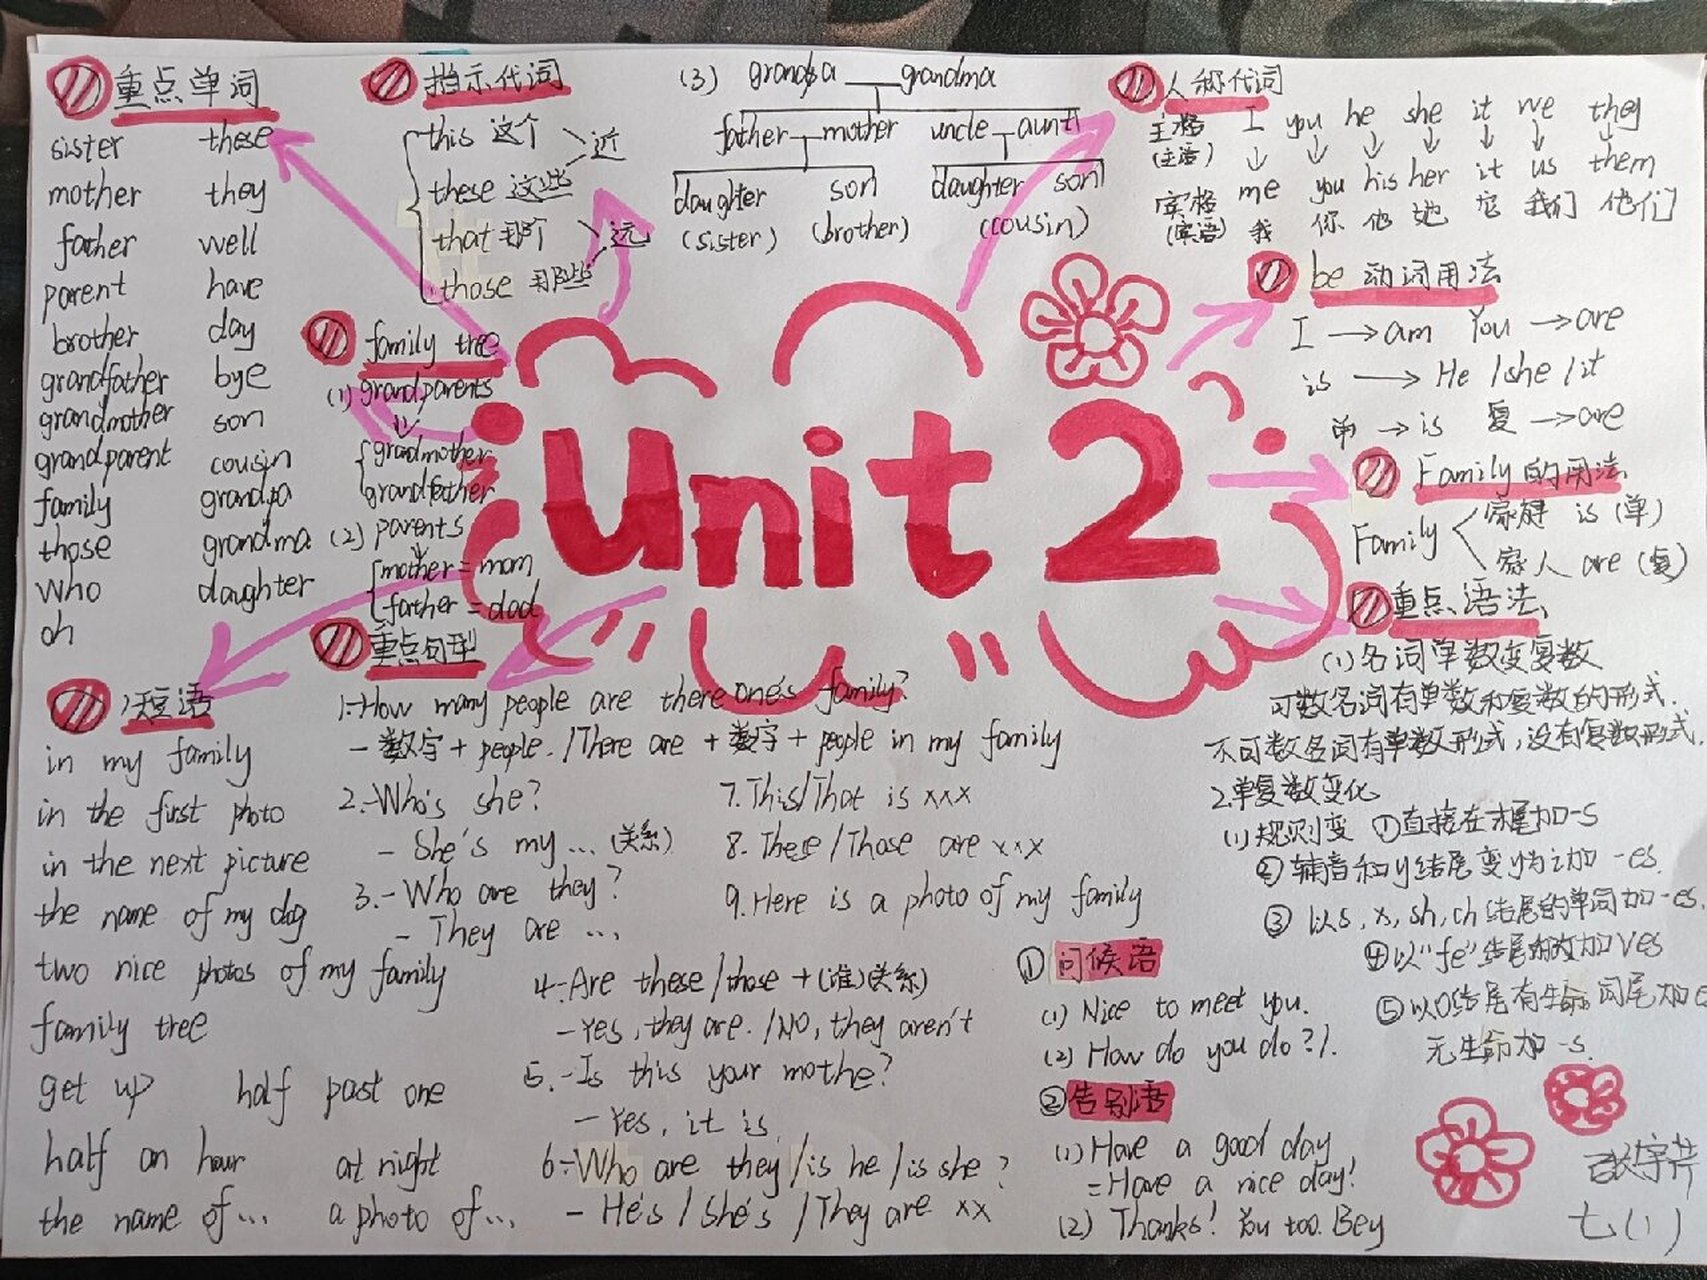 重点单词
sister these
mother they
father well
parent have
brother day
grandfather bye
grandmother son
grandparent cousin
family grandpa
those grandma
who daughter
oh
指示代词
this 这个
these 这些
近
that 那个
those 那些
远
family tree
(1) grandparents
grandmother
grandfather
(2) parents
mother = mom
father = dad
(3) grandpa grandma
father mother uncle aunt
daughter son daughter son
(sister) (brother) (cousin)
人称代词
主格 I you he she it we they
(主语)
宾格 me you his her it us them
(宾语) 我 你 他 她 它 我们 他们
be 动词用法
I → am You → are
is → He / she / it
单 → is 复 → are
Family 的用法
Family
家庭 is (单)
家人 are (复)
Unit 2
重点语法
(1) 名词单数变复数
可数名词有单数和复数的形式.
不可数名词有单数形式,没有复数形式.
2.单复数变化
(1) 规则变 ①直接在末尾加-s
② 辅音和y结尾变y为i加 -es.
③ 以s, x, sh, ch 结尾的单词加-es.
④以“fe”结尾的改加ves
⑤以O结尾有生命词尾加e
无生命加-s.
短语
in my family
in the first photo
in the next picture
the name of my dog
two nice photos of my family
family tree
get up half past one
half an hour at night
the name of... a photo of...
重点句型
1.-How many people are there one's family?
- 数字 + people. /There are + 数字 + people in my family
2.-Who's she?
- She's my ... (关系)
3.-Who are they?
- They are ...
4.-Are these / those + (谁)关系)
-Yes, they are. /NO, they aren't
5.-Is this your mothe?
-Yes, it is.
6.-Who are they /is he /is she ?
- He's / She's / They are xx
7.This/That is xxx
8. These / Those are xxx
9.Here is a photo of my family
① 问候语
(1) Nice to meet you.
(2) How do you do ?/.
② 告别语
(1) Have a good day
=Have a nice day!
(2) Thanks! You too. Bey
七(1)